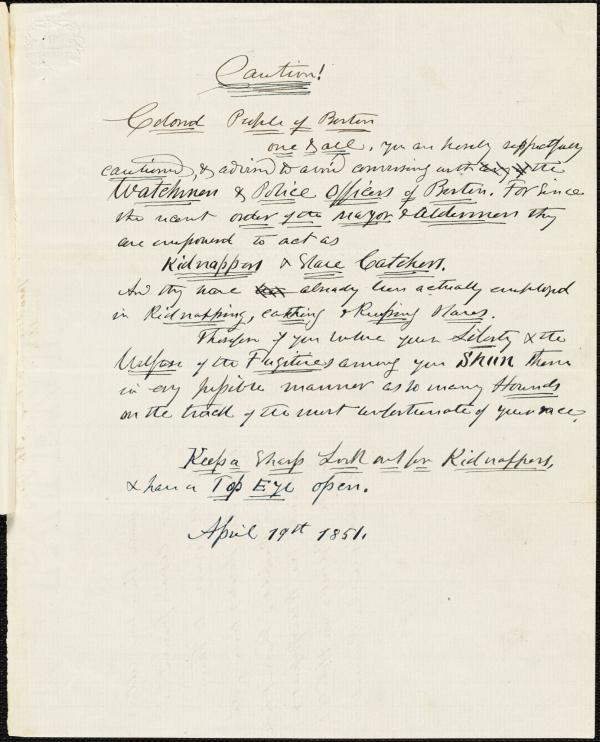 Caution!
Colored People of Boston
one & all, you are hereby respectfully
cautioned, & advised to avoid conversing with the
Watchmen & Police Officers of Boston. For since
the recent order of the Mayor & Aldermen they
are empowered to act as
Kidnappers & Slave Catchers.
And they have already been actually employed
in Kidnapping, catching & Keeping Slaves.
Therefore if you value your Liberty & the
Welfare of the Fugitives among you Shun them
in evy possible manner as so many Hounds
on the track of the most unfortunate of your race.
Keep a Sharp Look out for Kidnappers,
& have a Top Eye open.
April 19th 1851.